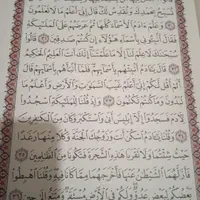 نُسَبِّحُ بِحَمْدِكَ وَنُقَدِّسُ لَكَ قَالَ إِنِّي أَعْلَمُ مَا لَا تَعْلَمُونَ
٣٠ وَعَلَّمَ ءَادَمَ الْأَسْمَاءَ كُلَّهَا ثُمَّ عَرَضَهُمْ عَلَى الْمَلَٰئِكَةِ
فَقَالَ أَنۢبِئُونِي بِأَسْمَاءِ هَٰؤُلَاءِ إِن كُنتُمْ صَٰدِقِينَ ٣١ قَالُوا
سُبْحَٰنَكَ لَا عِلْمَ لَنَا إِلَّا مَا عَلَّمْتَنَا إِنَّكَ أَنتَ الْعَلِيمُ الْحَكِيمُ
٣٢ قَالَ يَٰٓـَٔادَمُ أَنۢبِئْهُم بِأَسْمَائِهِمْ فَلَمَّا أَنۢبَأَهُم بِأَسْمَائِهِمْ قَالَ
أَلَمْ أَقُل لَّكُمْ إِنِّي أَعْلَمُ غَيْبَ السَّمَٰوَٰتِ وَالْأَرْضِ وَأَعْلَمُ مَا
تُبْدُونَ وَمَا كُنتُمْ تَكْتُمُونَ ٣٣ وَإِذْ قُلْنَا لِلْمَلَٰئِكَةِ اسْجُدُوا
لِءَادَمَ فَسَجَدُوا إِلَّا إِبْلِيسَ أَبَىٰ وَاسْتَكْبَرَ وَكَانَ مِنَ الْكَٰفِرِينَ
٣٤ وَقُلْنَا يَٰٓـَٔادَمُ اسْكُنْ أَنتَ وَزَوْجُكَ الْجَنَّةَ وَكُلَا مِنْهَا رَغَدًا
حَيْثُ شِئْتُمَا وَلَا تَقْرَبَا هَٰذِهِ الشَّجَرَةَ فَتَكُونَا مِنَ الظَّٰلِمِينَ ٣٥
فَأَزَلَّهُمَا الشَّيْطَٰنُ عَنْهَا فَأَخْرَجَهُمَا مِمَّا كَانَا فِيهِ وَقُلْنَا اهْبِطُوا
بَعْضُكُمْ لِبَعْضٍ عَدُوٌّ وَلَكُمْ فِي الْأَرْضِ مُسْتَقَرٌّ وَمَتَٰعٌ إِلَىٰ حِينٍ